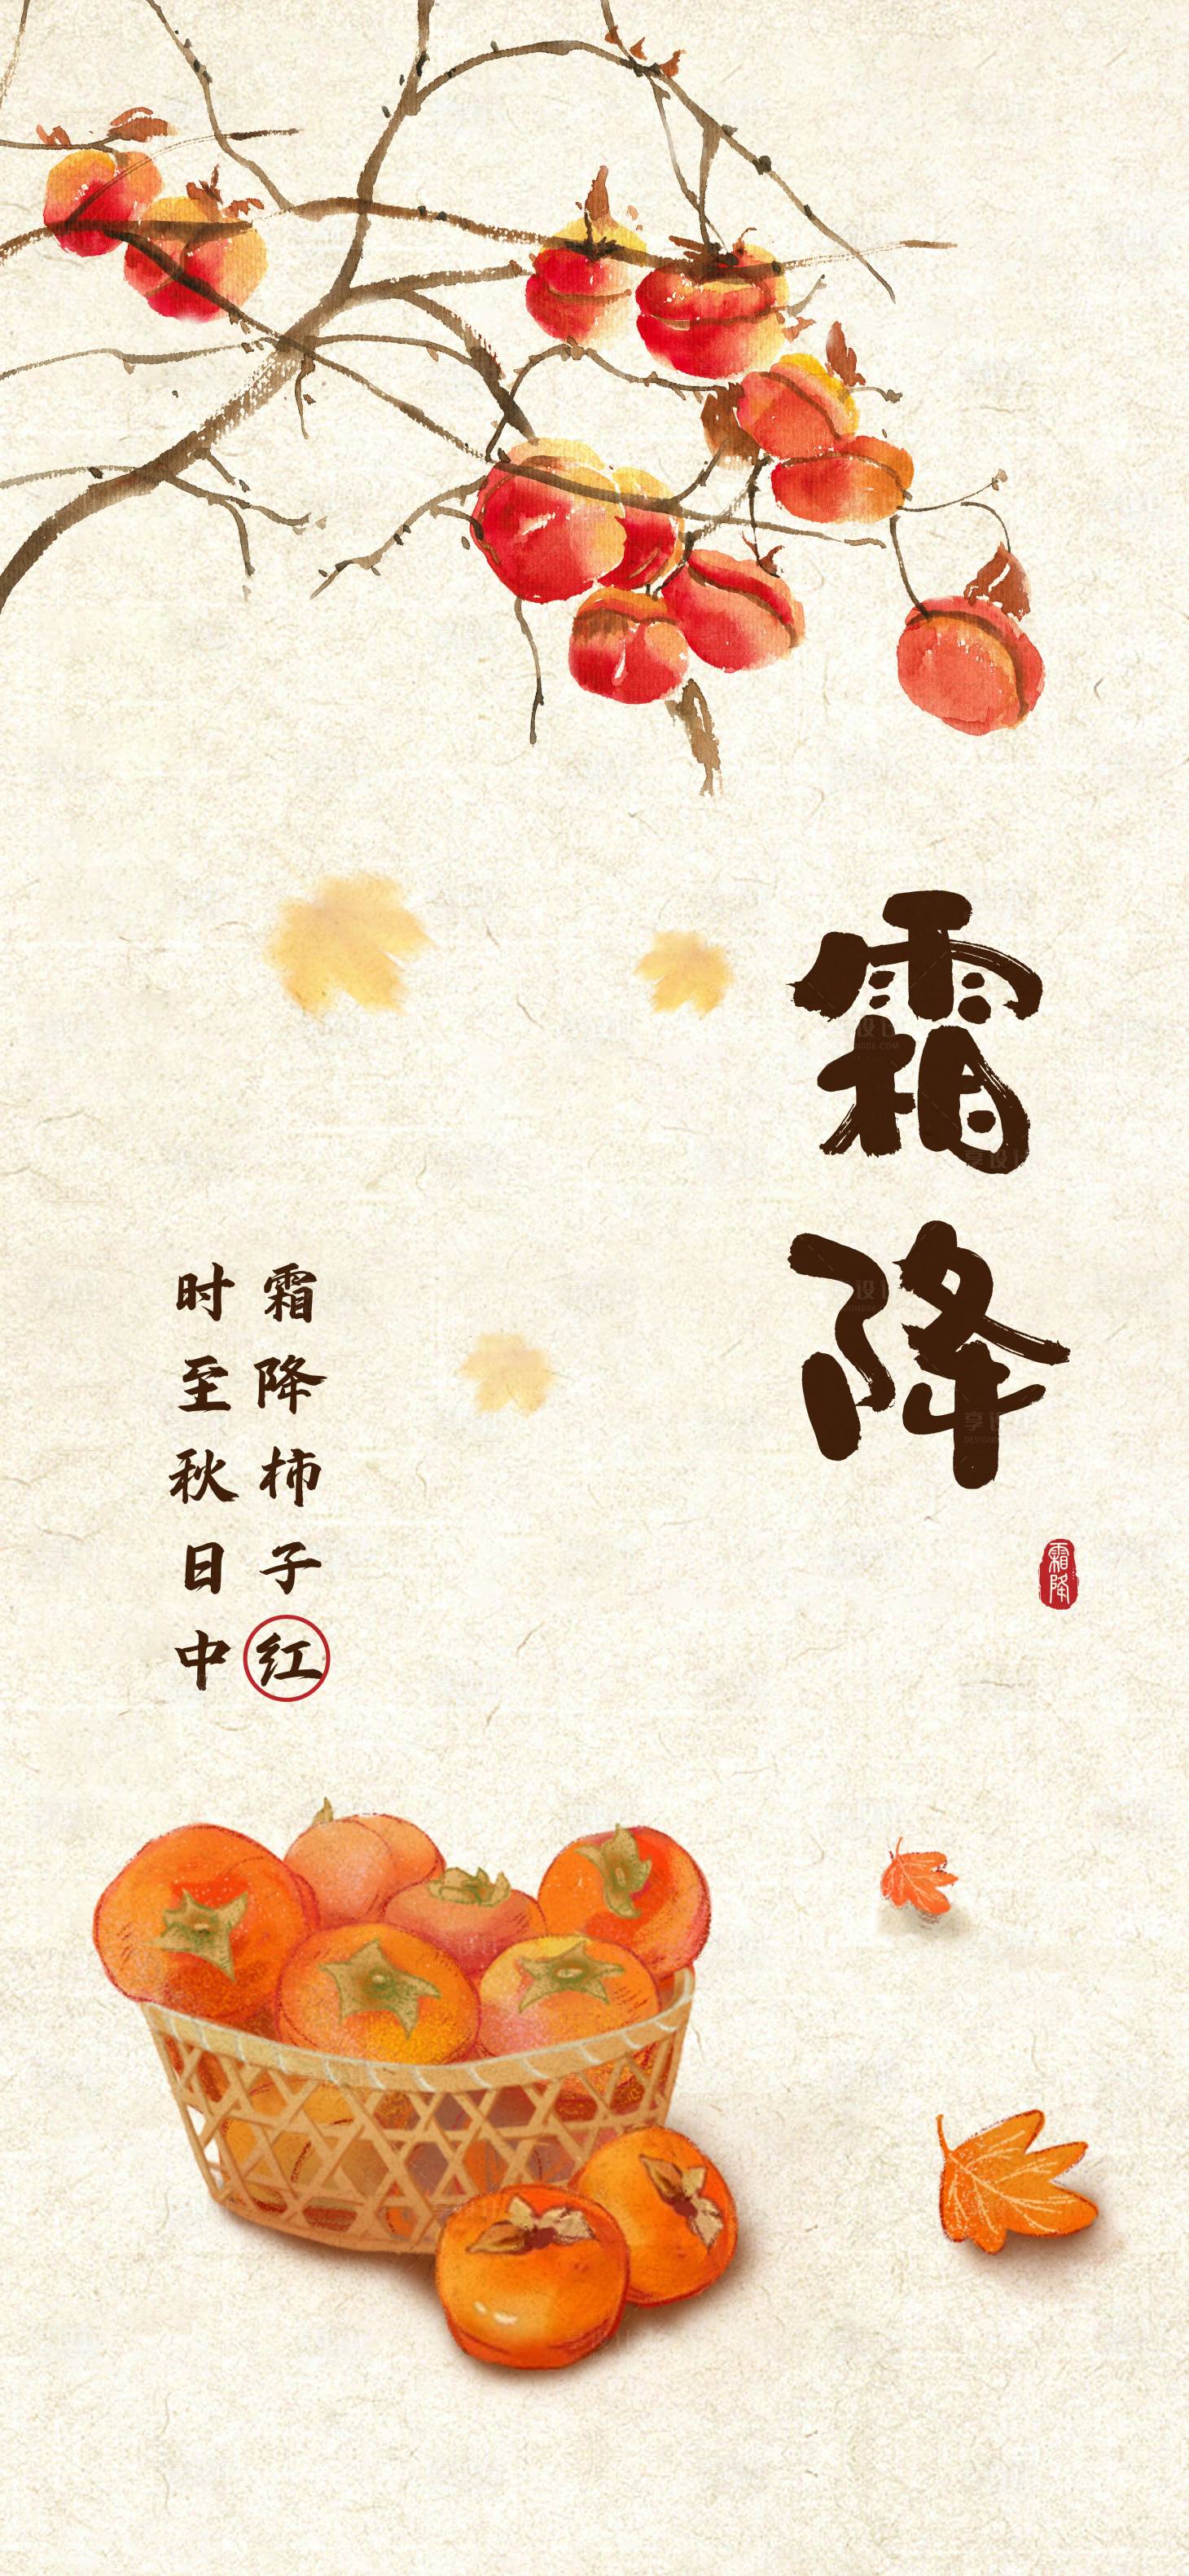 霜降
霜降
霜降柿子红
时至秋日中